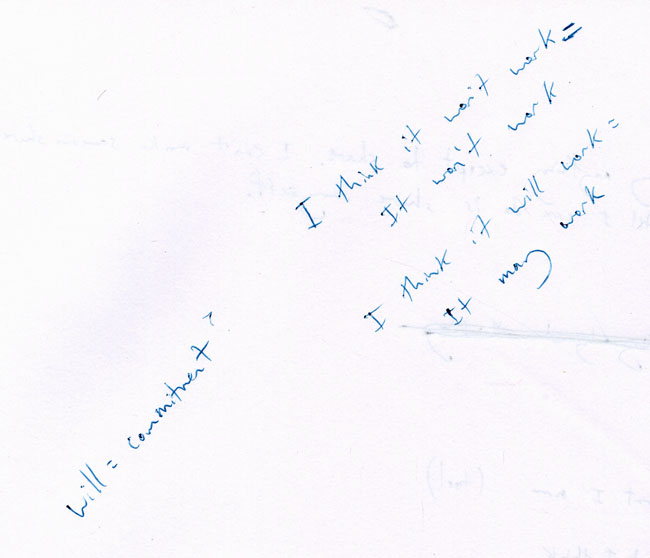 I think it won't work =
It won't work
I think it will work =
It may work
will = commitment?